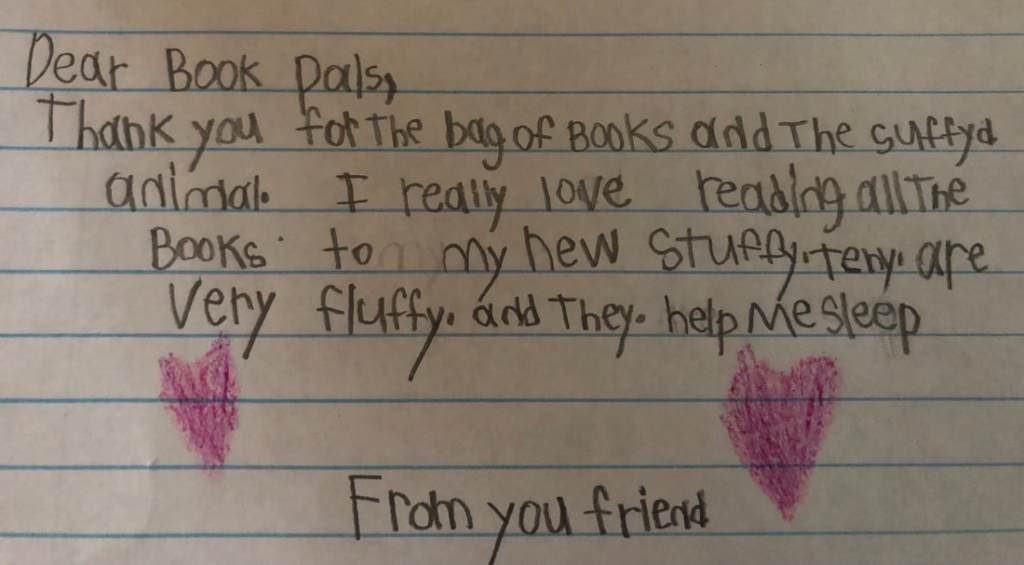 Dear Book pals,
Thank you for The bag of Books and The suffyd
animal. I really love reading all The
Books. to my new stuffy. tery. are
Very fluffy. and They. help Me sleep
From you friend